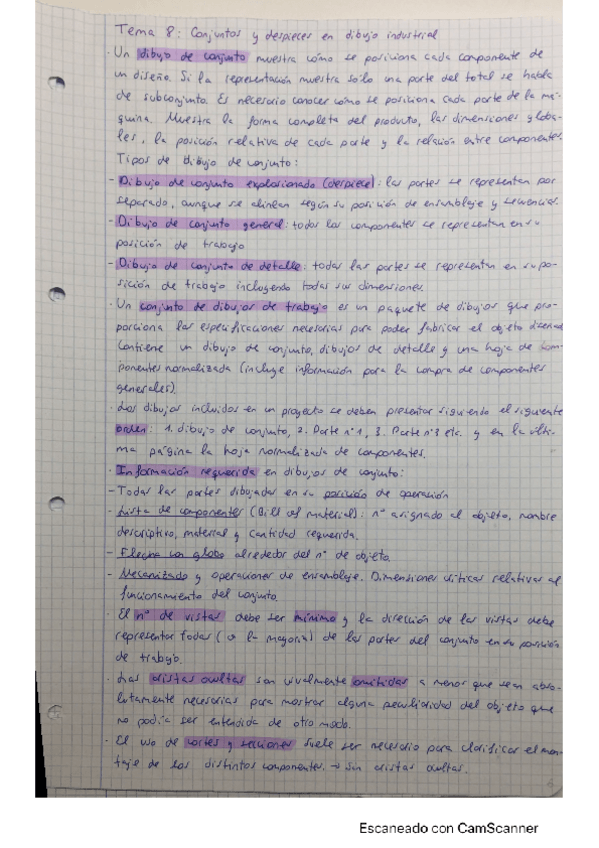 Tema 8: Conjuntos y despieces en dibujo industrial
· Un dibujo de conjunto muestra cómo se posiciona cada componente de
un diseño. Si la representación muestra sólo una parte del total se habla
de subconjunto. Es necesario conocer cómo se posiciona cada parte de la má-
quina. Muestra la forma completa del producto, las dimensiones globa-
les, la posición relativa de cada parte y la relación entre componentes.
Tipos de dibujo de conjunto:
- Dibujo de conjunto explosionado (despiece): las partes se representan por
separado, aunque se alinean según su posición de ensamblaje y secuencias.
- Dibujo de conjunto general: todos los componentes se representan en su
posición de trabajo
- Dibujo de conjunto de detalle: todas las partes se representan en su po-
sición de trabajo incluyendo todas sus dimensiones.
· Un conjunto de dibujos de trabajo es un paquete de dibujos que pro-
porciona las especificaciones necesarias para poder fabricar el objeto
Contiene un dibujo de conjunto, dibujos de detalle y una hoja de com-
ponentes normalizada (incluye información para la compra de componentes
generales).
· Los dibujos incluidos en un proyecto se deben presentar siguiendo el siguiente
orden: 1. dibujo de conjunto, 2. Parte nº1, 3. Parte nº3 etc. y en la últi-
ma página la hoja normalizada de componentes.
· Información requerida en dibujos de conjunto:
- Todas las partes dibujadas en su posición de operación
- Lista de componentes (Bill of material): nº asignado al objeto, nombre
descriptivo, material y cantidad requerida.
- Flecha con globo alrededor del nº de objeto.
- Mecanizado y operaciones de ensamblaje. Dimensiones críticas relativas al
funcionamiento del conjunto.
· El nº de vistas debe ser mínimo y la dirección de las vistas debe
representar todas (o la mayoría) de las partes del conjunto en su posición
de trabajo.
· Las aristas ocultas son usualmente omitidas a menos que sean abso-
lutamente necesarias para mostrar alguna peculiaridad del objeto que
no podía ser entendida de otro modo.
· El uso de cortes y secciones suele ser necesario para clarificar el mon-
taje de los distintos componentes. → Sin aristas ocultas.
Escaneado con CamScanner